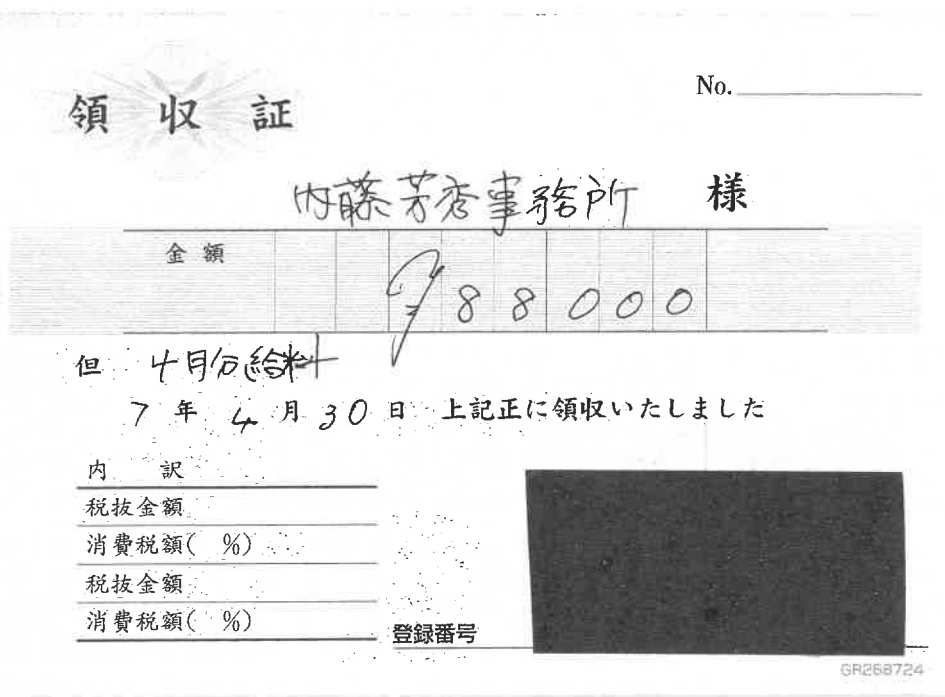 領収証
No.
内藤芳秀事務所 様
金額 ¥88000
但 4月分給料
7年4月30日 上記正に領収いたしました
内訳
税抜金額
消費税額( %)
税抜金額
消費税額( %)
登録番号
GR268724